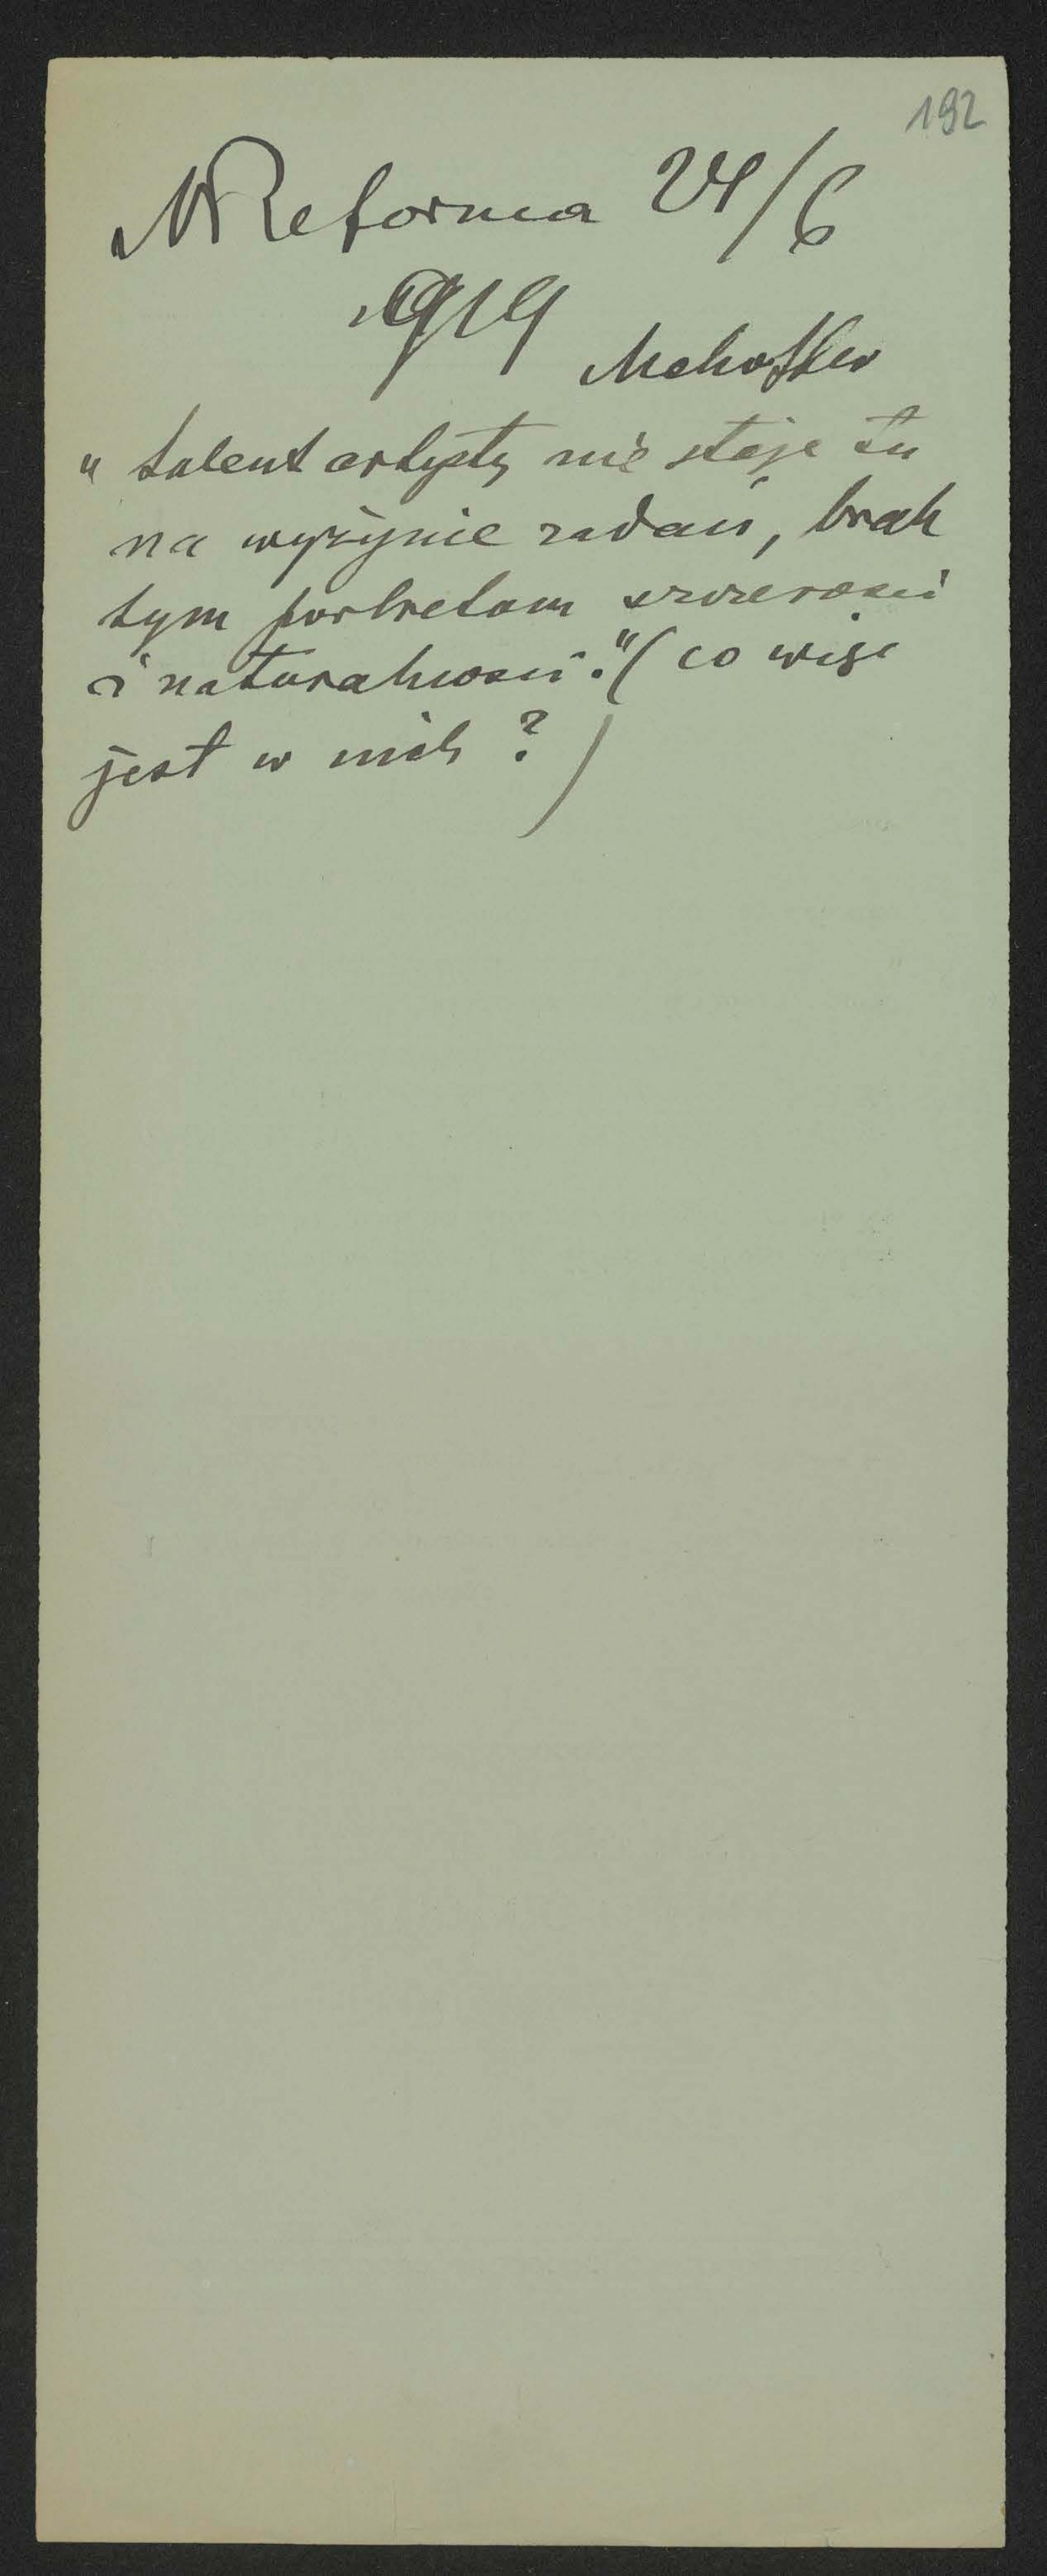 192
NReforma 24/6
1919
Mehoffer
"talent artysty nie staje tu
na wyżynie zadań, brak
tym portretom szczerości
i naturalności." (co więc
jest w nich?)